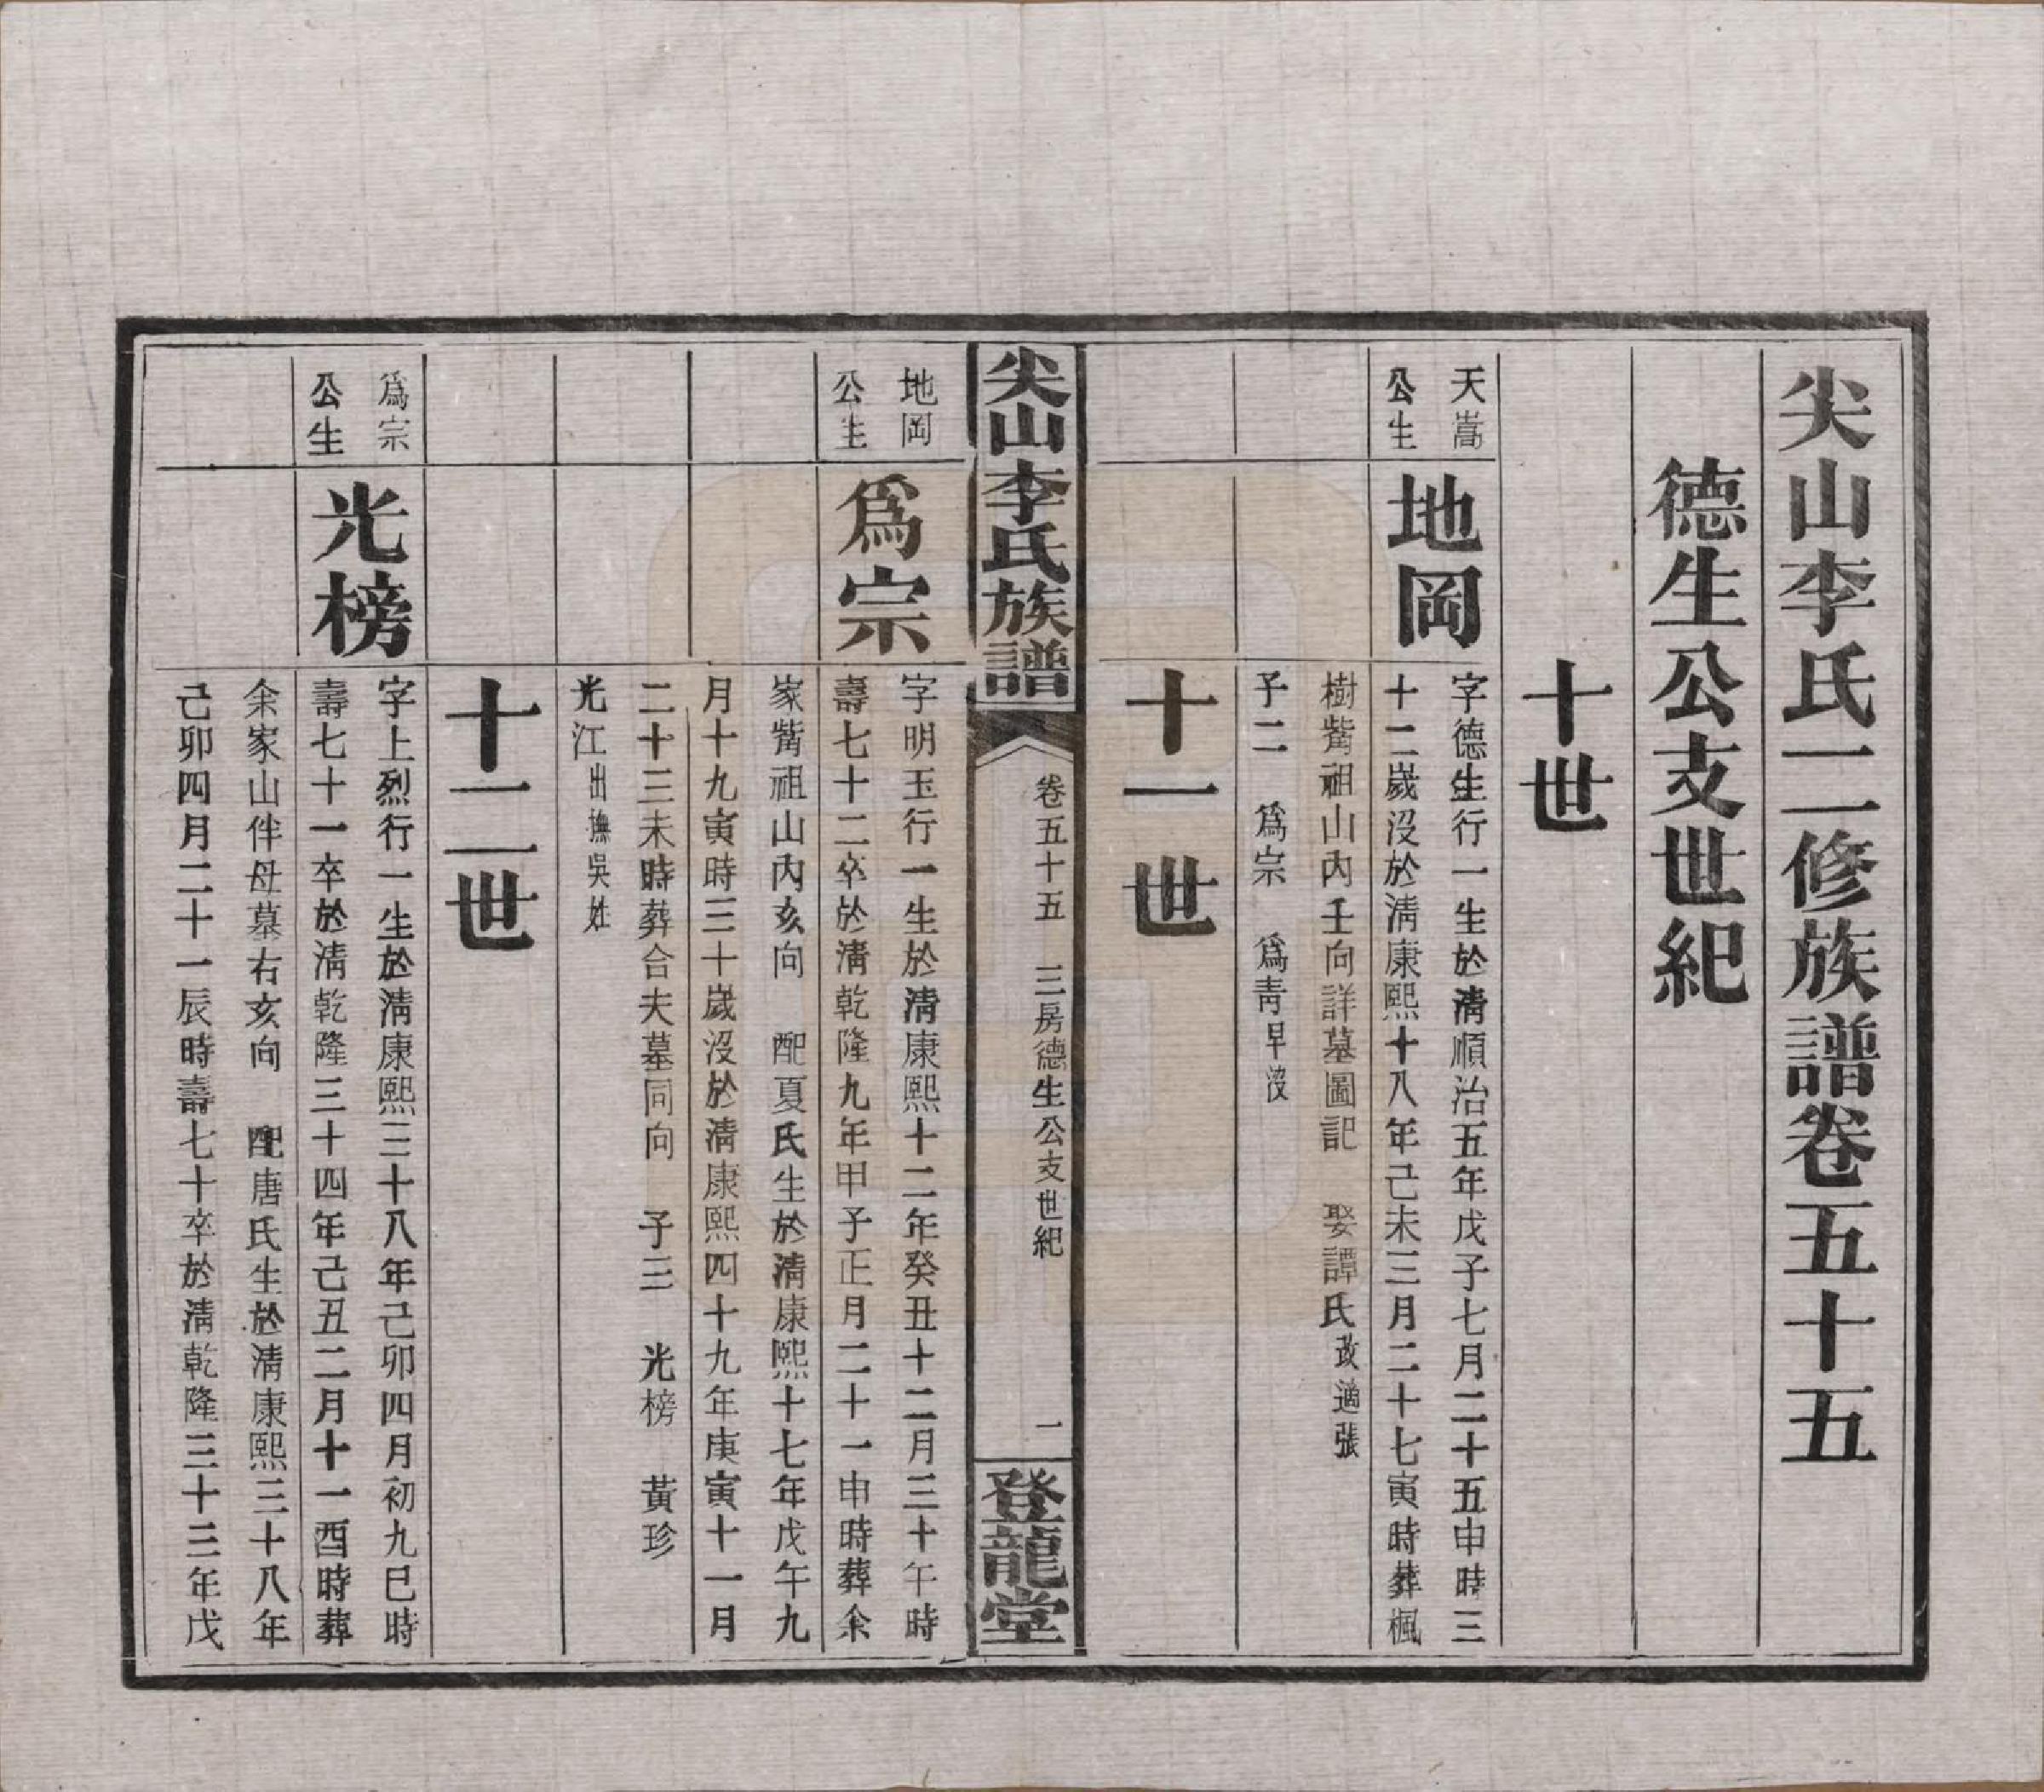 尖山李氏二修族譜卷五十五
德生公支世紀
十世
天嵩
公生
地岡
字德生行一生於清順治五年戊子七月二十五申時三
十二歲沒於清康熙十八年己未三月二十七寅時葬楓
樹觜祖山內壬向詳墓圖記 娶譚氏改適張
子二 爲宗 爲青早沒
十一世
尖山李氏族譜
卷五十五 三房德生公支世紀 一
登龍堂
地岡
公生
爲宗
字明玉行一生於清康熙十二年癸丑十二月三十午時
壽七十二卒於清乾隆九年甲子正月二十一申時葬余
家觜祖山內亥向 配夏氏生於清康熙十七年戊午九
月十九寅時三十歲沒於清康熙四十九年庚寅十一月
二十三未時葬合夫墓同向 子三 光榜 黃珍
光江出撫吳姓
十二世
爲宗
公生
光榜
字上烈行一生於清康熙三十八年己卯四月初九巳時
壽七十一卒於清乾隆三十四年己丑二月十一酉時葬
余家山伴母墓右亥向 配唐氏生於清康熙三十八年
己卯四月二十一辰時壽七十卒於清乾隆三十三年戊